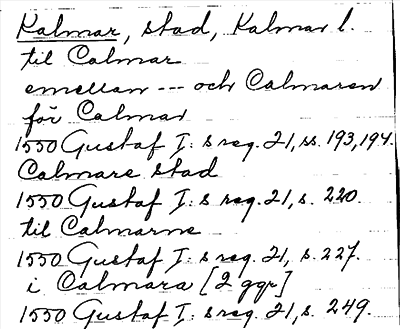 Kalmar, stad, Kalmar l.
til Calmar
emellan --- och Calmaren
för Calmar
1550 Gustaf I:s reg. 21, ss. 193, 194.
Calmare stad
1550 Gustaf I:s reg. 21, s. 220.
til Calmarne
1550 Gustaf I:s reg. 21, s. 227.
i Calmara [2 ggr]
1550 Gustaf I:s reg. 21, s. 249.